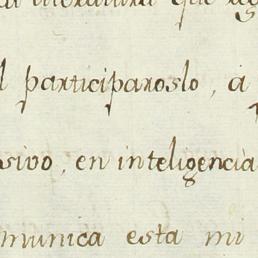 l participaroslo, á
sivo, en inteligencia
munica esta mi